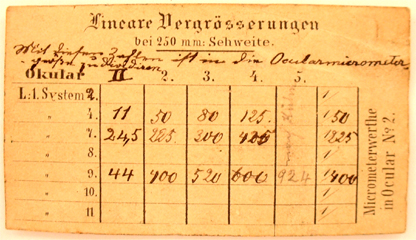 Lineare Vergrösserungen
bei 250 mm: Sehweite.
Mit diesen Zahlen ist in die Ocularmicrometer
größe zu dividiren
Okular II 2. 3. 4. 5.
L:1. System 2.
" 4. 11 50 80 125. 50
" 7. 245 285 300 1225
" 8.
" 9. 44 400 520 600 924 1400
" 10.
" 11
Micrometerwerthe
in Ocular No 2.